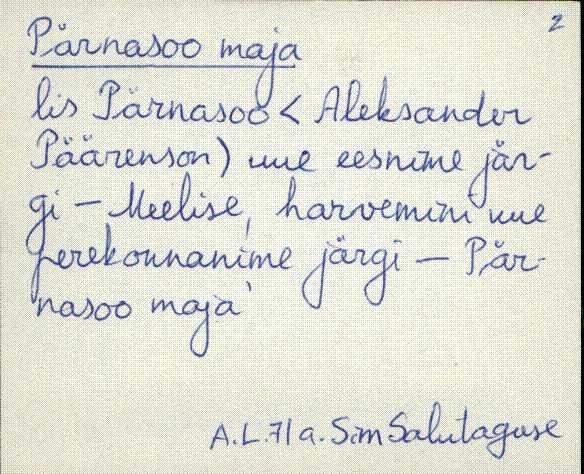 2
Pärnasoo maja
lis Pärnasoo < Aleksander
Päärenson) uue eesnime jär-
gi – Meelise, harvemini uue
perekonnanime järgi – Pär-
nasoo maja'
A.L. 71 a. Sim Salutaguse